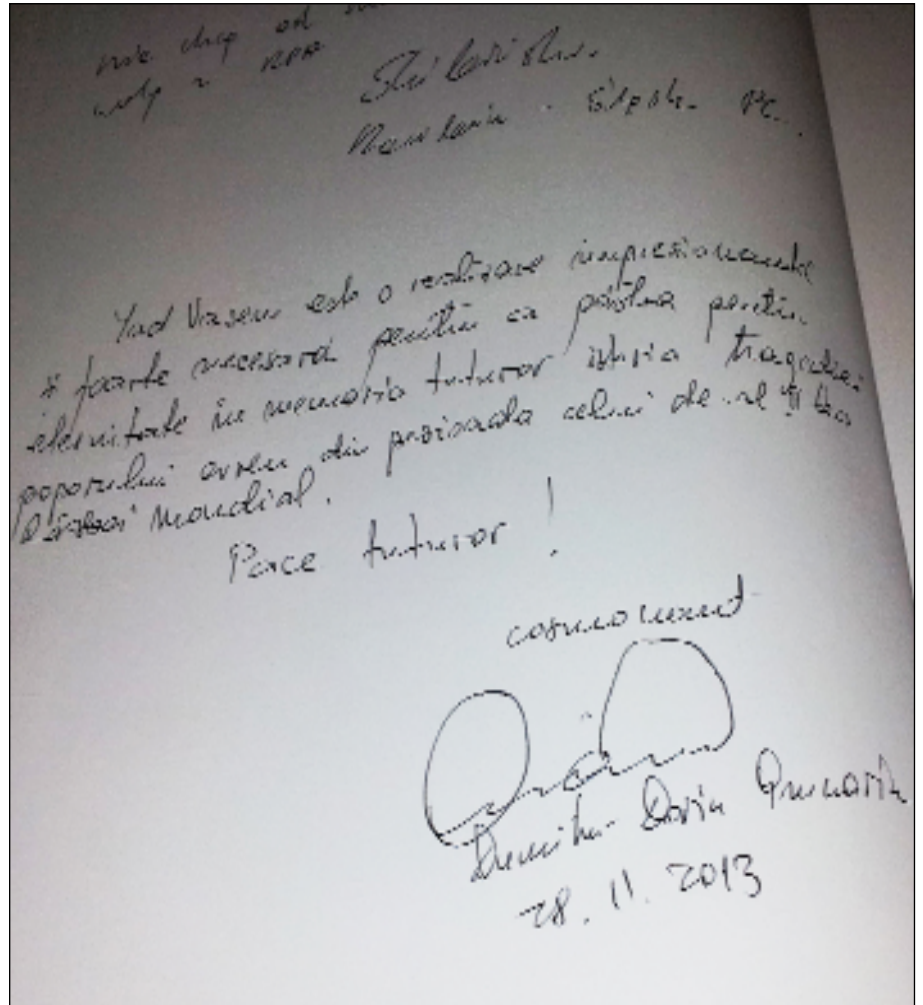 Yad Vasem este o realizare impresionantă
și foarte necesară pentru ca păstra pentru
eternitate în memoria tuturor istoria tragediei
poporului evreu din perioada celui de-al II lea
Război Mondial.
Pace tuturor!
cosmonaut
Dumitru Dorin Prunariu
28.11.2013